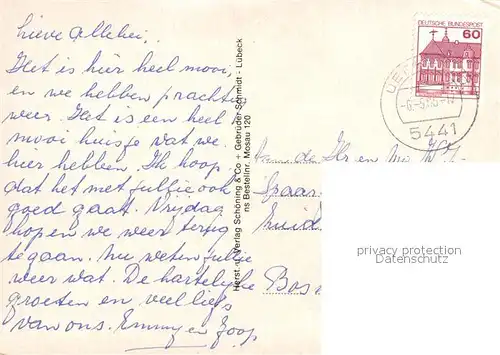 Lieve Allebei.
Het is hier heel mooi,
en we hebben prachtig
weer. Het is een heel
mooi huisje wat we
hier hebben. Ik hoop
dat het met jullie ook
goed gaat. Vrijdag
hopen we weer terug
te gaan. Nu weten jullie
weer wat. De hartelijke
groeten en veel liefs
van ons. Emmy en Joop
Herst. u. Verlag Schöning & Co + Gebrüder Schmidt - Lübeck
ns Bestellnr. Mosau 120
DEUTSCHE BUNDESPOST
60
5441
Aan de Hr en
Spaar
Zuid
Bos
privacy protection
Datenschutz